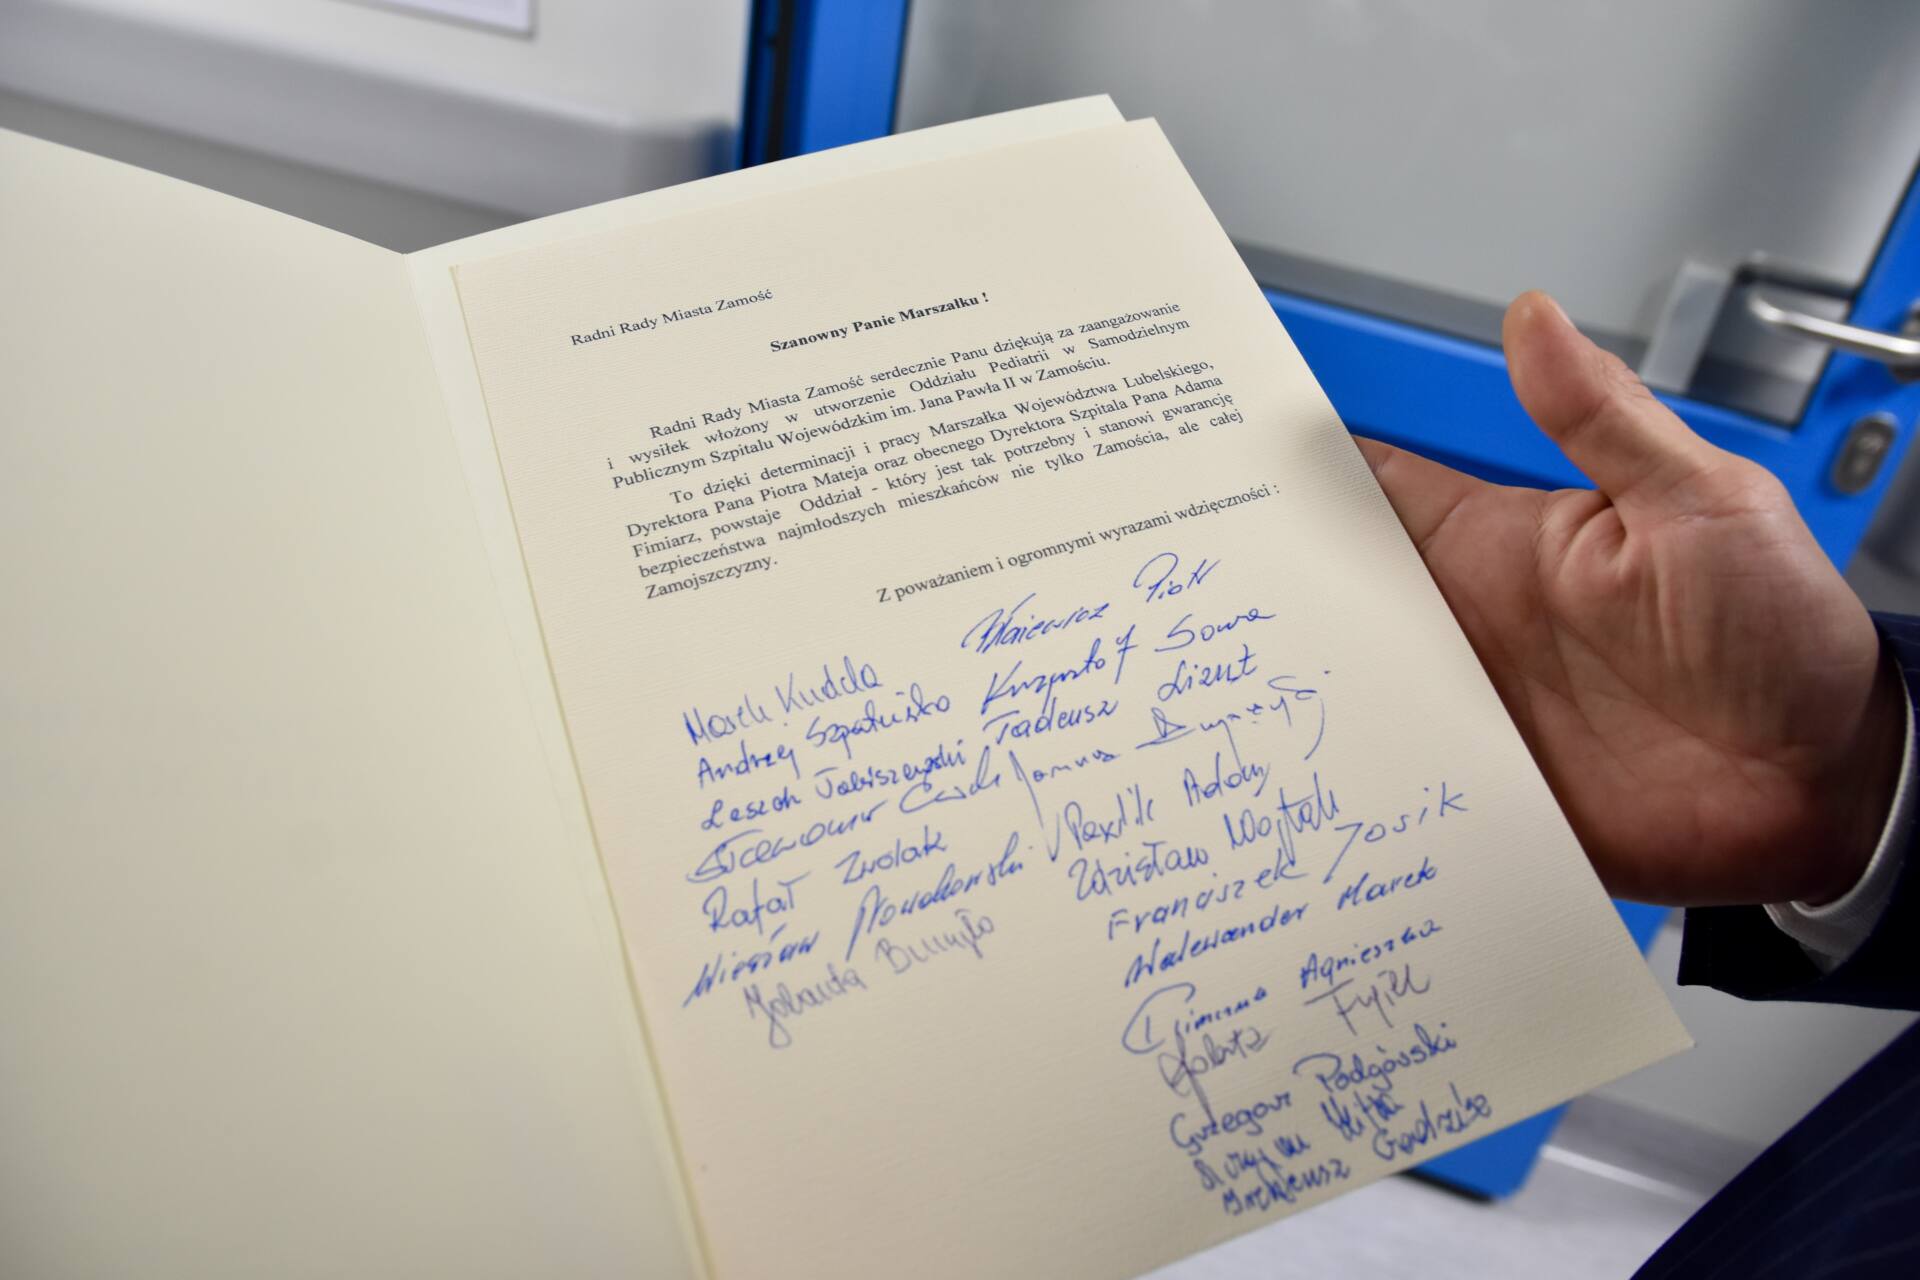 Radni Rady Miasta Zamość
Szanowny Panie Marszałku !
Radni Rady Miasta Zamość serdecznie Panu dziękują za zaangażowanie
i wysiłek włożony w utworzenie Oddziału Pediatrii w Samodzielnym
Publicznym Szpitalu Wojewódzkim im. Jana Pawła II w Zamościu.
To dzięki determinacji i pracy Marszałka Województwa Lubelskiego,
Dyrektora Pana Piotra Mateja oraz obecnego Dyrektora Szpitala Pana Adama
Fimiarz, powstaje Oddział - który jest tak potrzebny i stanowi gwarancję
bezpieczeństwa najmłodszych mieszkańców nie tylko Zamościa, ale całej
Zamojszczyzny.
Z poważaniem i ogromnymi wyrazami wdzięczności :
Piotr
Marek Kudela
Krzysztof Sowa
Andrzej
Tadeusz Lizut
Leszek
Sławomir Ćwik
Janusz
Rafał Zwolak
Pawlik Adam
Wiesław Nowakowski
Zdzisław Wojtak
Jolanta
Franciszek Josik
Walewander Marek
Agnieszka
Jolanta Fugiel
Grzegorz Podgórski
Ireneusz Godzisz